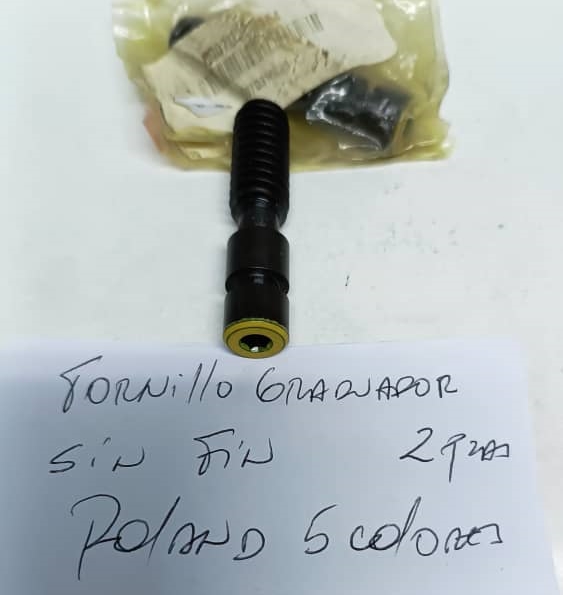 Tornillo Graduador
sin fin 2 pzas
Roland 5 colores